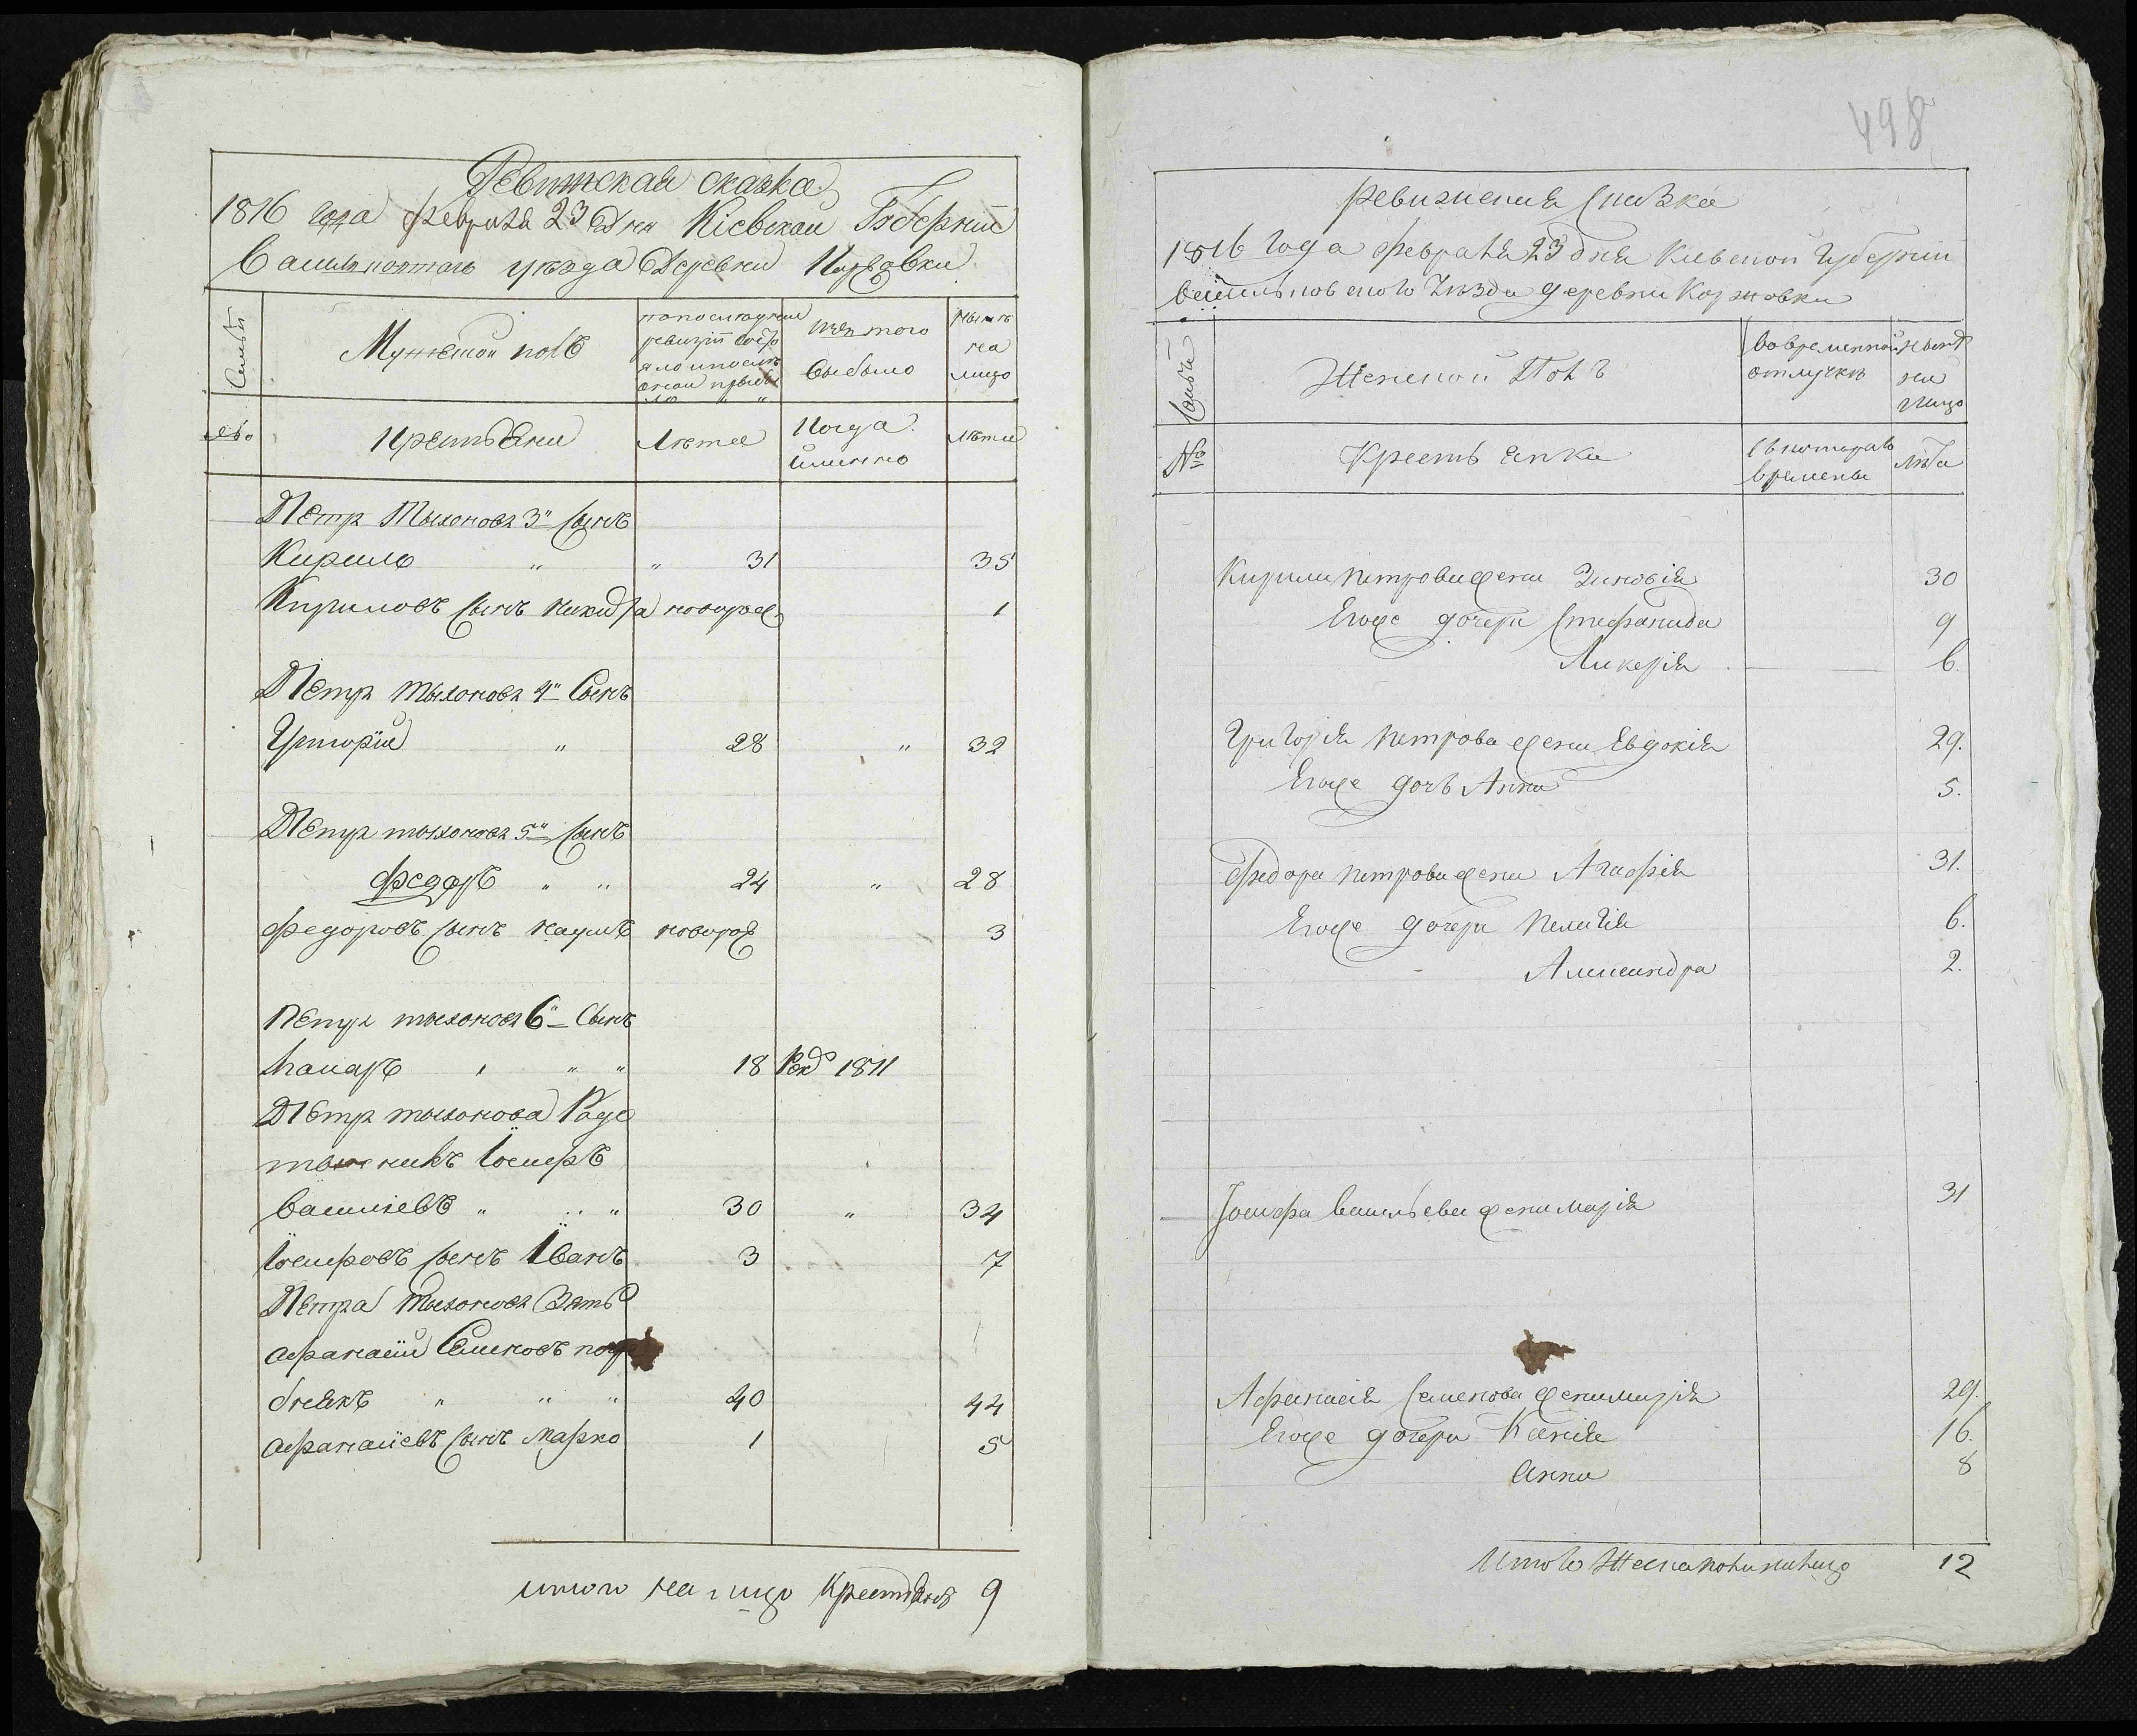 Ревижская сказка
1816 года февраля 23 Дня Кіевской Губерніи
Василковскаго уезда Деревни Коржовки
Семьи
Мужеской полъ
по последней
ревизіи состо
яло и после
оной прибы
ло " "
изъ того
выбыло
ныне
на
лицо
№
Крестьяни
Лета
Когда
именно
Лета
Петра Тыхонова 3й Сынъ
Кирило " " 31 35
Кириловъ Сынъ Никифа новорож 1
Петра Тыхонова 4й Сынъ
Григорій " 28 " 32
Петра тыхонова 5й Сынъ
Федоръ " " 24 " 28
Федоровъ Сынъ Наумъ новорож 3
Петра тыхонова 6й Сынъ
Макаръ " " " 18 Рек 1811
Петра тыхонова Родс
твенникъ Іосифъ
Василіевъ " " " 30 " 34
Іосифовъ Сынъ Іванъ 3 7
Петра Тыхонова Зять
Афанасій Семеновъ
" " " 40 44
Афанасіевъ Сынъ Марко 1 5
итого на лицо Крестьянъ 9
498
Ревизская Сказка
1816 Года Февраля 23 дня Киевской Губернии
Васильковского Уезда деревни Коржовки
Семьи
Женской Полъ
Во временной
отлучке
Ныне
на
лицо
№
Крестьянки
Съ котораго
времени
Лета
Кирила Петрова жена Зиновія 30
Егоже дочери Стефанида 9
Ликерія 6.
Григорія Петрова жена Евдокія 29.
Егоже дочь Анна 5.
Федора Петрова жена Агафія 31.
Егоже дочери Пелагія 6.
Александра 2.
Іосифа Васильева жена Марія 31
Афанасія Семенова жена Марія 29.
Егоже дочери Ксенія 16.
Анна 8
Итого Женска пола на лицо 12